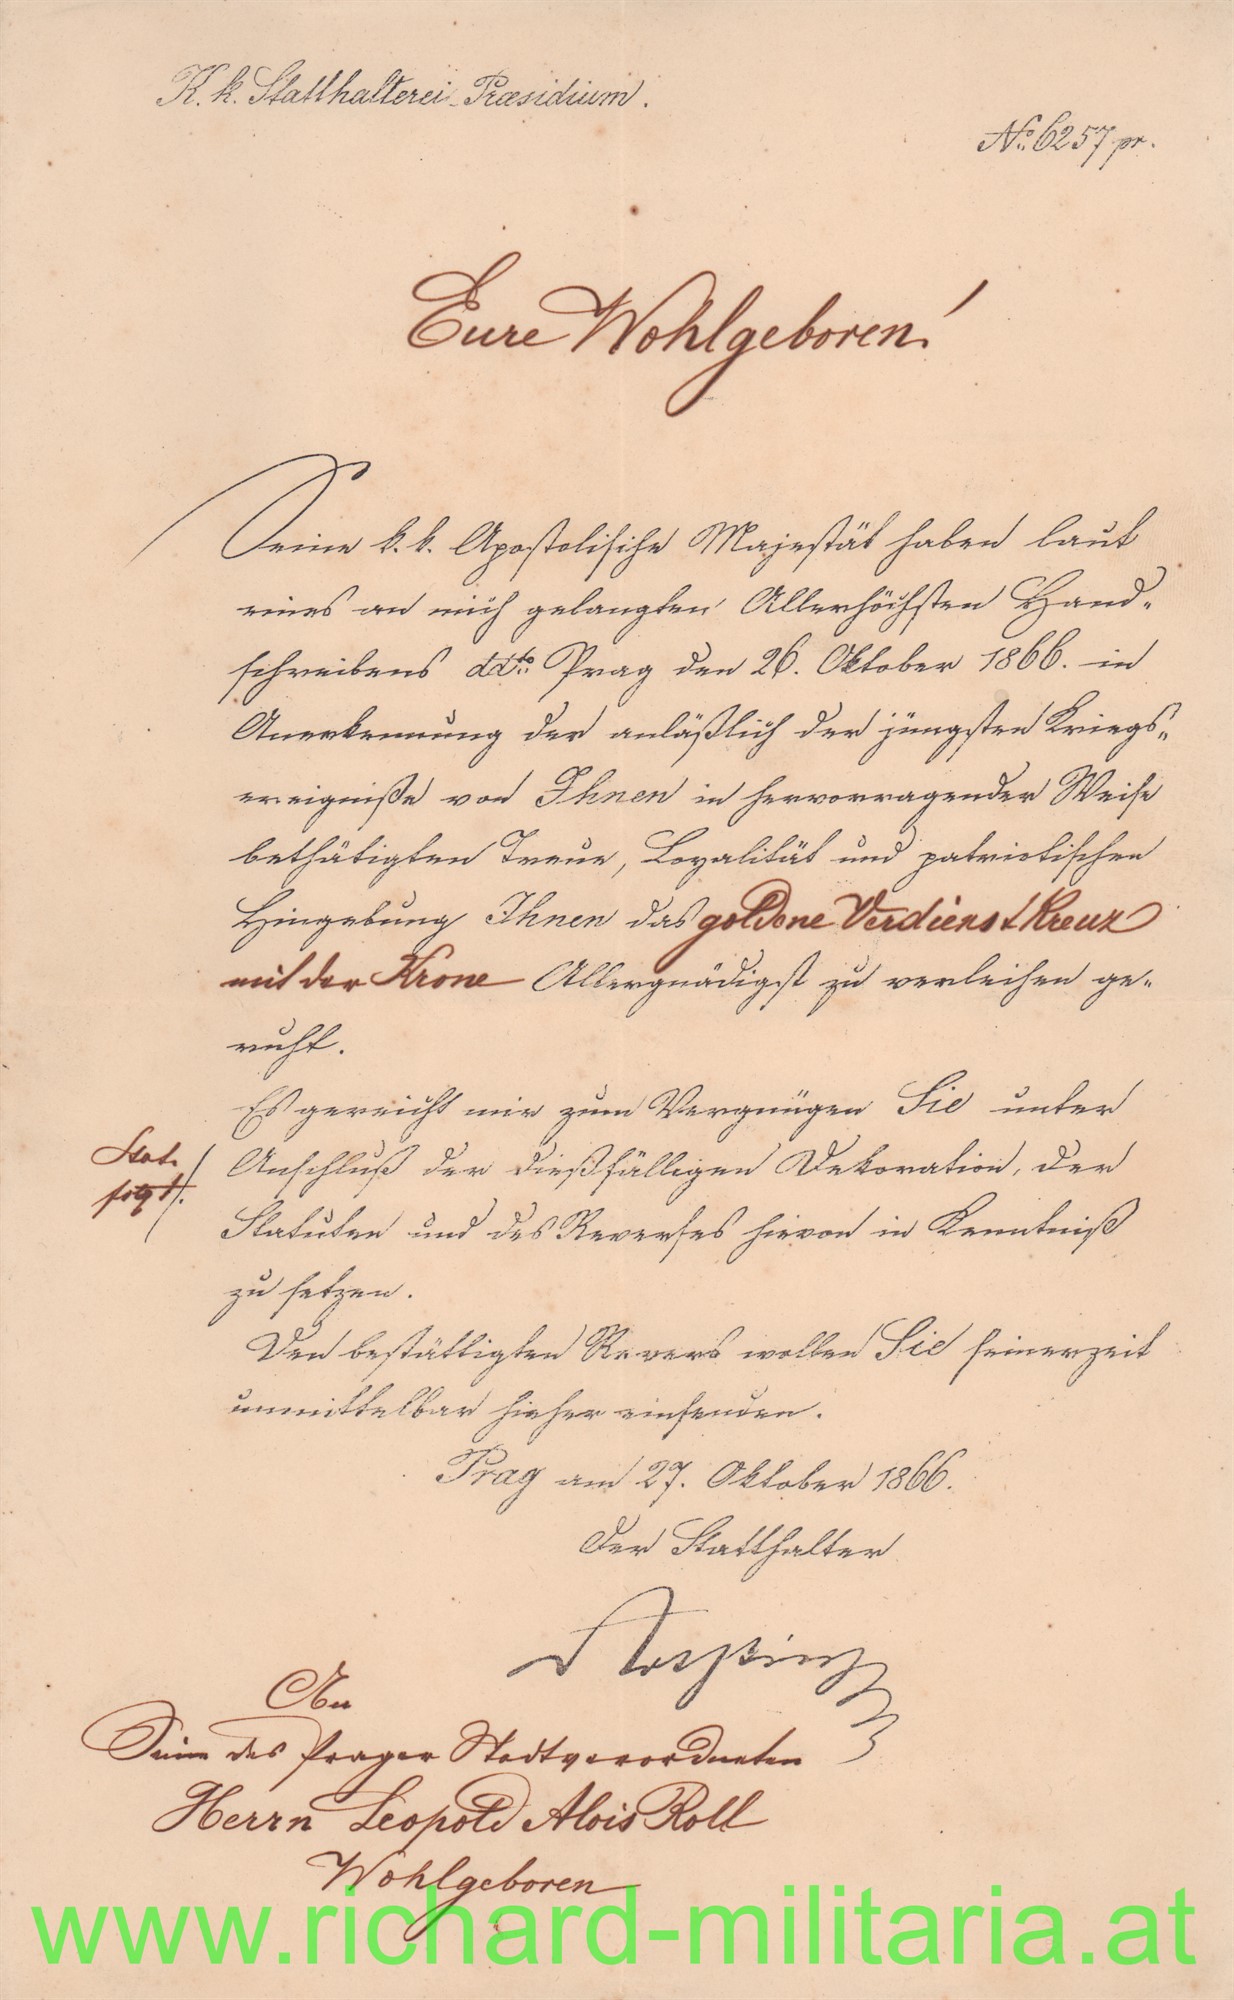 K. k. Statthalterei-Præsidium.
No. 6257 pr.
Eure Wohlgeboren!
Seine k. k. Apostolische Majestät haben laut
eines an mich gelangten Allerhöchsten Hand-
schreibens ddto. Prag den 26. Oktober 1866. in
Anerkennung der anläßlich der jüngsten Kriegs-
ereigniße von Ihnen in hervorragender Weise
bethätigten Treue, Loyalität und patriotischen
Hingebung Ihnen das goldene Verdienst Kreuz
mit der Krone Allergnädigst zu verleihen ge-
ruht.
Es gereicht mir zum Vergnügen Sie unter
Stat. folgt /.
Anschluß der dießfälligen Dekoration, der
Statuten und des Reverses hievon in Kenntniß
zu setzen.
Den bestättigten Revers wollen Sie seinerzeit
unmittelbar hieher einsenden.
Prag am 27. Oktober 1866.
Der Statthalter
An
Seine des Prager Stadtverordneten
Herrn Leopold Alois Roll
Wohlgeboren
www.richard-militaria.at